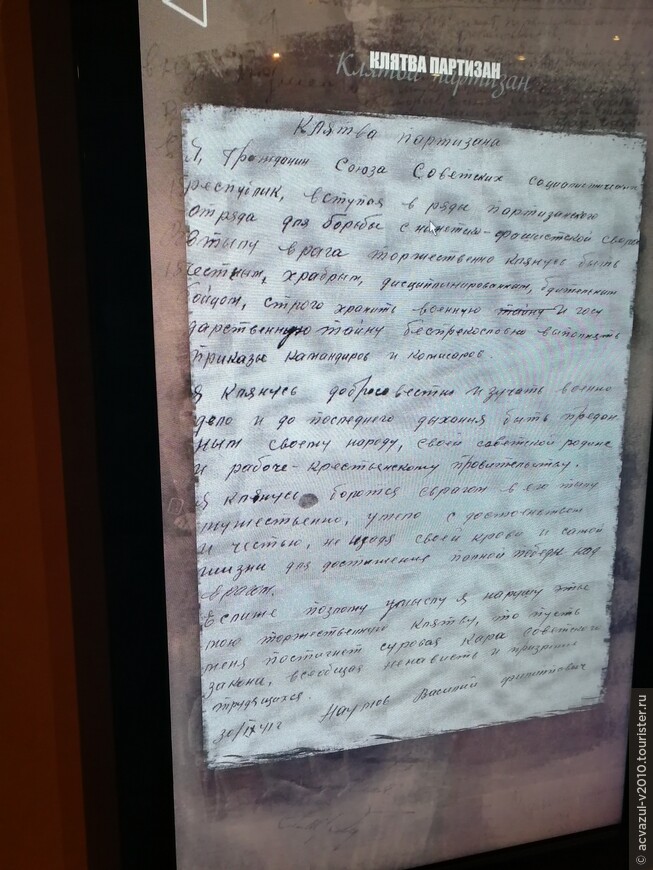 КЛЯТВА ПАРТИЗАН
Клятва партизан
Клятва партизана
Я, гражданин Союза Советских социалистических
республик, вступая в ряды партизанского
отряда для борьбы с немецко-фашистской сворой
в тылу врага торжественно клянусь быть
честным, храбрым, дисциплинированным, бдительным
бойцом, строго хранить военную тайну и госу
дарственную тайну беспрекословно выполнять
приказы командиров и комиссаров.
Я клянусь добросовестно изучать военно
дело и до последнего дыхания быть предан
ным своему народу, своей советской родине
и рабоче-крестьянскому правительству.
Я клянусь боротся с врагом в его тылу
мужественно, умело с достоинством
и честью, не щадя своей крови и самой
жизни для достижения полной победы над
врагом.
Если же по злому умыслу я нарушу эту
мою торжественную клятву, то пусть
меня постигнет суровая кара советского
закона, всеобщая ненависть и презрение
трудящихся.
30/IX 41г Наумов Василий Филиппович
© acvazul-v2010.tourister.ru